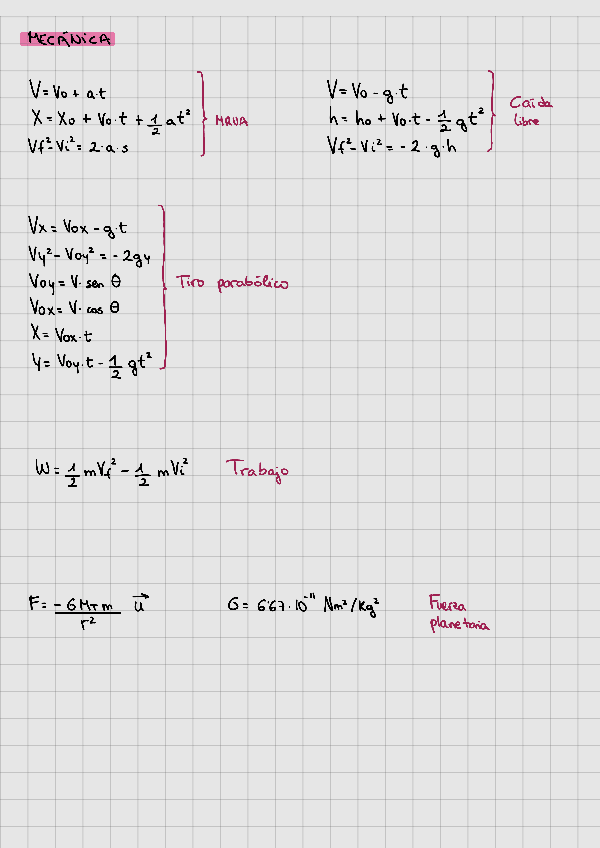 MECÁNICA
V = Vo + a·t
X = Xo + Vo·t + 1/2 at²
Vf² - Vi² = 2·a·s
MRUA
V = Vo - g·t
h = ho + Vo·t - 1/2 gt²
Vf² - Vi² = - 2·g·h
Caída
libre
Vx = Vox - g·t
Vy² - Voy² = - 2gy
Voy = V· sen θ
Vox = V· cos θ
X = Vox·t
y = Voy·t - 1/2 gt²
Tiro parabólico
W = 1/2 mVf² - 1/2 mVi²
Trabajo
F = - G MT m / r² u⃗
G = 6'67·10⁻¹¹ Nm²/Kg²
Fuerza
planetaria